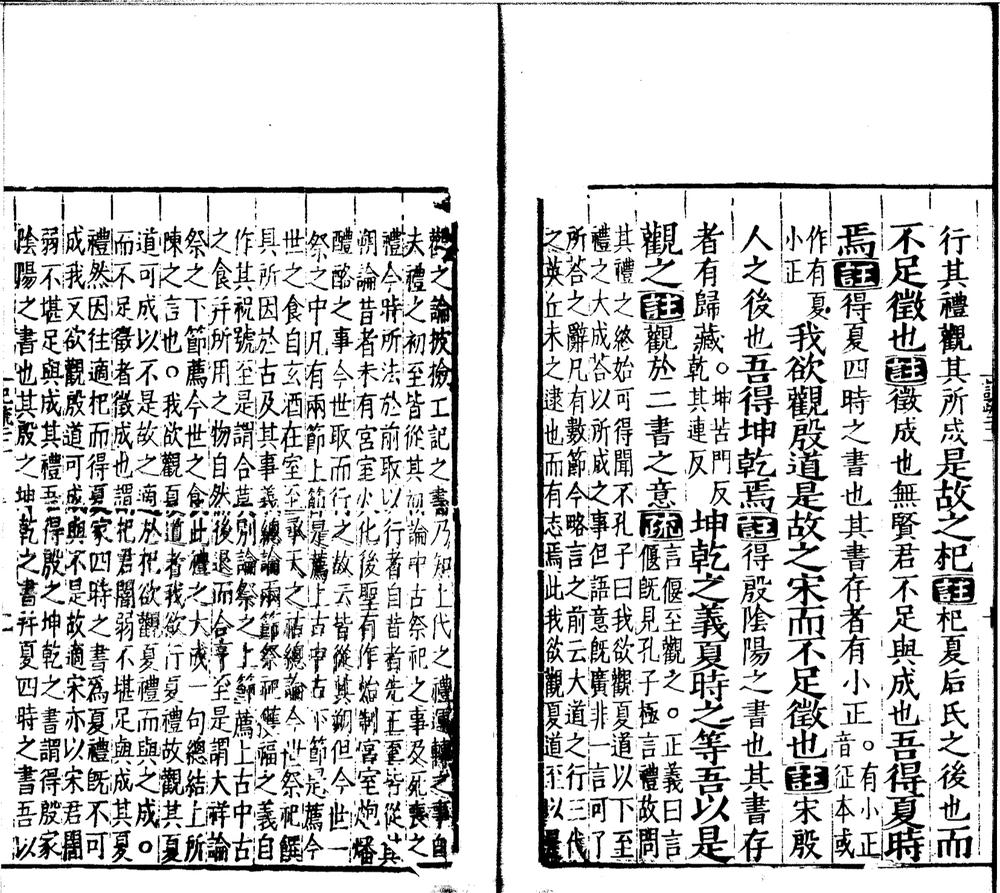 行其禮觀其所成是故之杞註杞夏后氏之後也而
不足徵也註徵成也無賢君不足與成也吾得夏時
焉註得夏四時之書也其書存者有小正。有小正
音征本或
作有夏
小正
我欲觀殷道是故之宋而不足徵也註宋殷
人之後也吾得坤乾焉註得殷陰陽之書也其書存
者有歸藏
。坤苦門反
乾其連反
坤乾之義夏時之等吾以是
觀之註觀於二書之意疏
言偃至觀之。正義曰言
偃既見孔子極言禮故問
其禮之終始可得聞不孔子曰我欲觀夏道以下至
禮之大成荅以所成之事但語意既廣非一言可了
所荅之辭凡有數節今略言之前云大道之行三代
之英丘未之逮也而有志焉此我欲觀夏道至以是
觀之論披撿工記之書乃知上代之禮運轉之事自
夫禮之初至皆從其初論中古祭祀之事及死喪之
禮今時所法於前取以行者自昔者先王至皆從其
朔論昔者未有宮室火化後聖有作始制宮室炮燔
醴酪之事今世取而行之故云皆從其朔但今世一
祭之中凡有兩節上節是薦上古中古下節是薦今
世之食自玄酒在室至承天之祜總論今世祭祀饌
具所因於古及其事義總論兩節祭祀獲福之義自
作其祝號至是謂合莫別論祭之上節薦上古中古
之食并所用之物自然後退而合亨至是謂大祥論
祭之下節薦今世之食此禮之大成一句總結上所
陳之言也。我欲觀夏道者我欲行夏禮故觀其夏
道可成以不是故之適於杞欲觀夏禮而與之成。
而不足徵者徵成也謂杞君闇弱不堪足與成其夏
禮然因往適杞而得夏家四時之書焉夏禮既不可
成我又欲觀殷道可成與不是故適宋亦以宋君闇
弱不堪足與成其禮吾得殷之坤乾之書謂得殷家
陰陽之書也其殷之坤乾之書并夏四時之書吾以